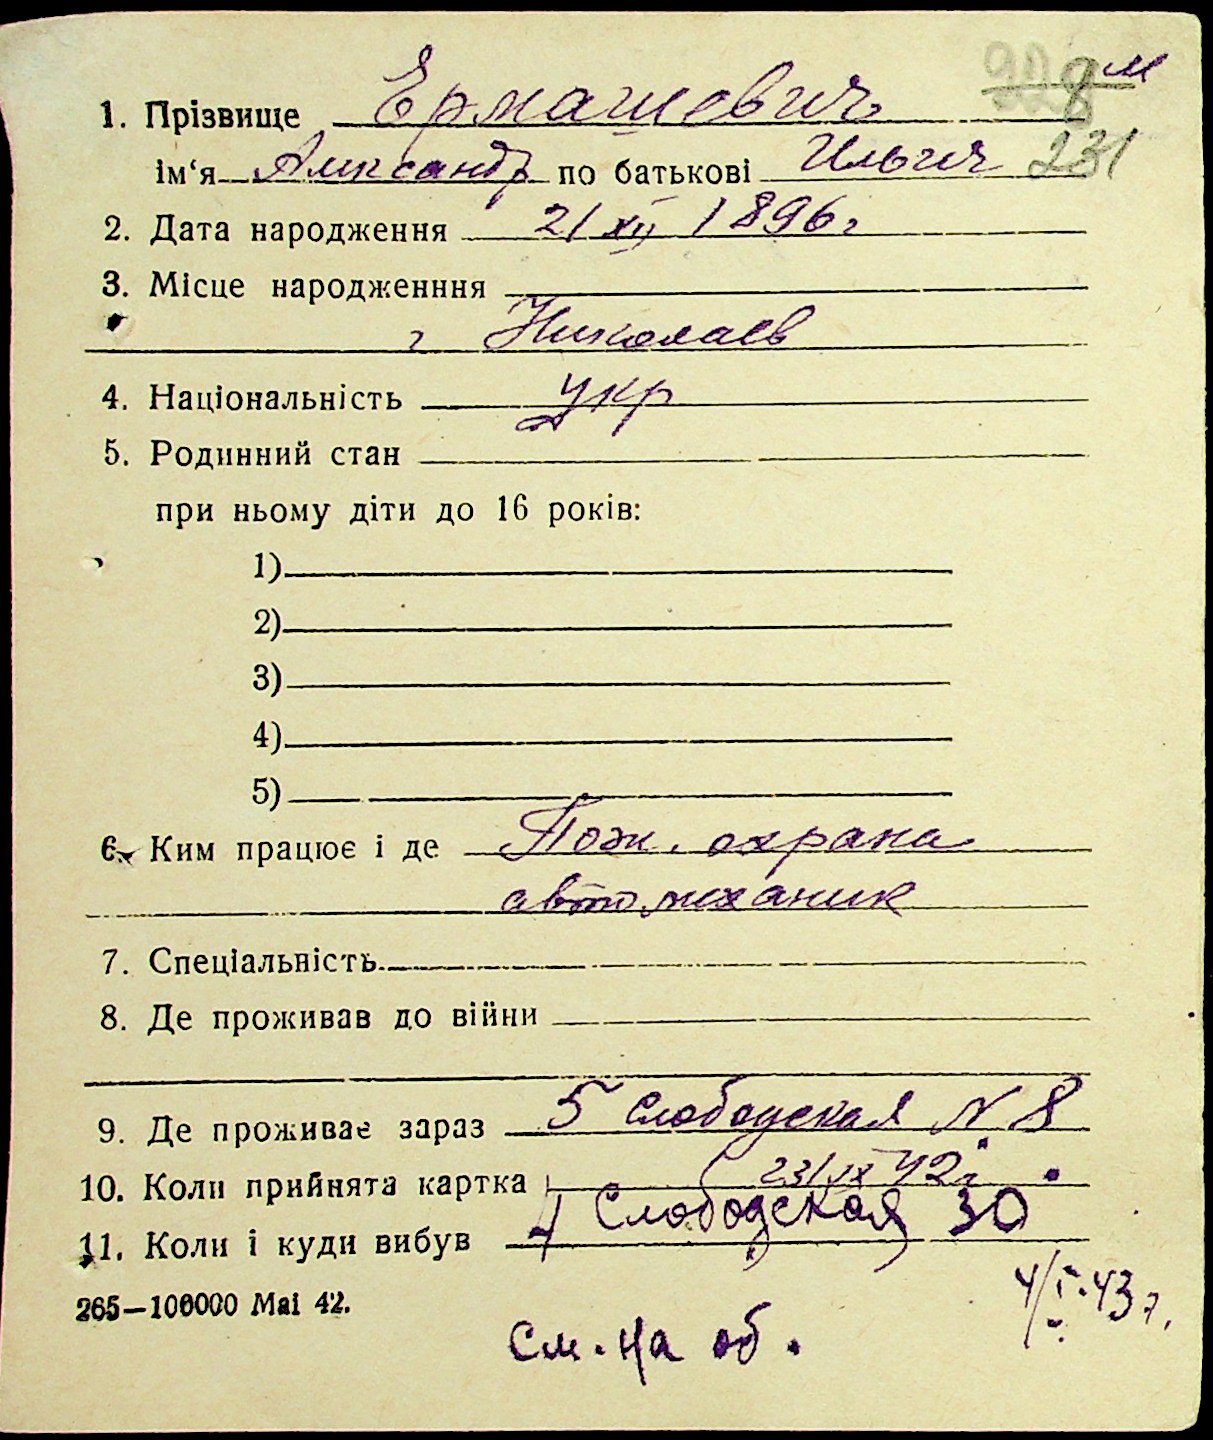 228 м
1. Прізвище Ермашевич
ім‘я Александр по батькові Ильич 231
2. Дата народження 21 XII 1896 г
3. Місце народженння
г Николаев
4. Національність укр
5. Родинний стан
при ньому діти до 16 років:
1)
2)
3)
4)
5)
6. Ким працює і де Пож. охрана
автомеханик
7. Спеціальність
8. Де проживав до війни
9. Де проживає зараз 5 Слободская N 8
10. Коли прийнята картка 23/IX 42 г
11. Коли і куди вибув 4 Слободская 30
4/I.43 г.
265—100000 Маі 42.
См. на об.